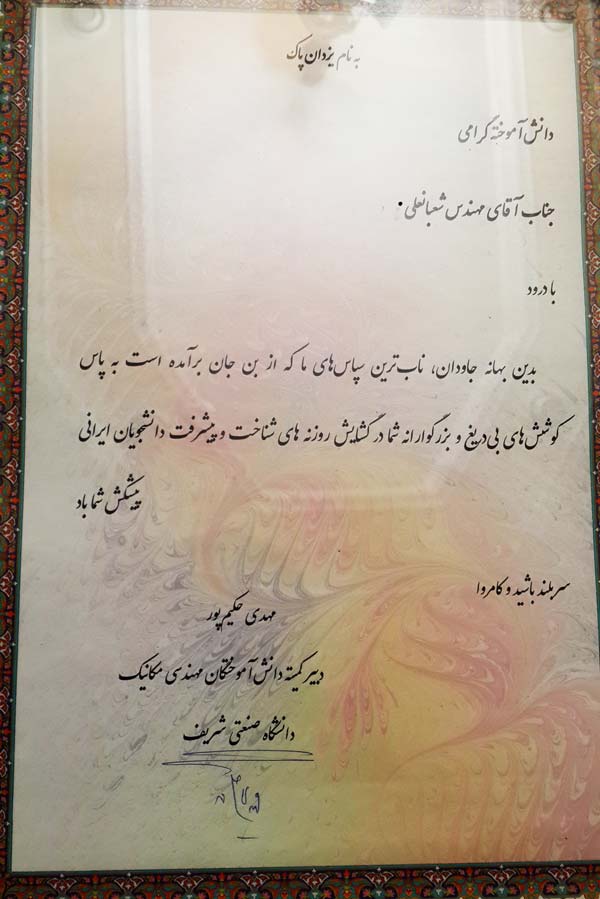 به نام یزدان پاک
دانش آموخته گرامی
جناب آقای مهندس شعبانعلی
با درود
بدین بهانه جاودان، ناب‌ترین سپاس‌های ما که از بن جان برآمده است به پاس
کوشش‌های بی‌دریغ و بزرگوارانه شما در گشایش روزنه های شناخت و پیشرفت دانشجویان ایرانی
پیشکش شما باد
سربلند باشید و کامروا
مهدی حکیم پور
دبیر کمیته دانش آموختگان مهندسی مکانیک
دانشگاه صنعتی شریف